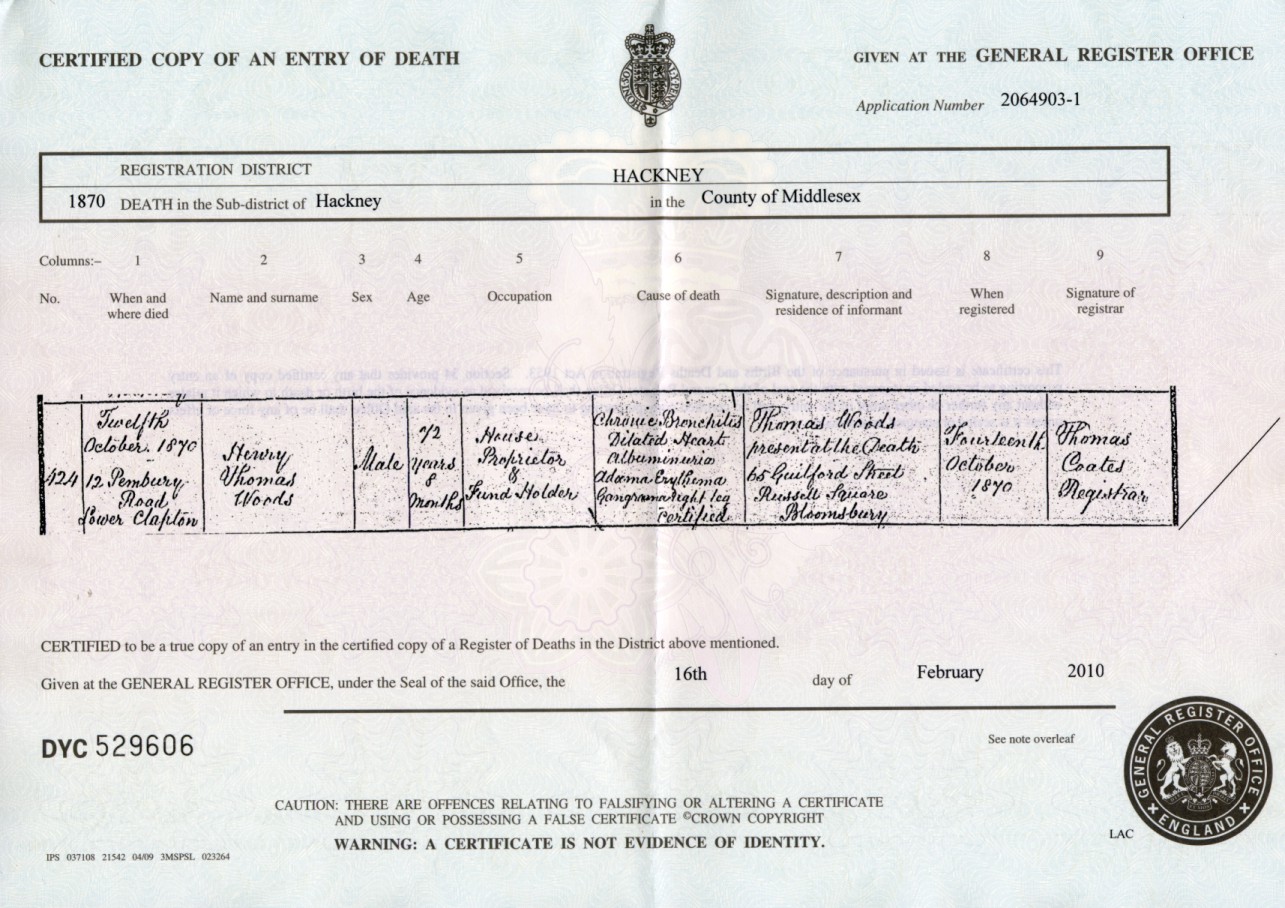 CERTIFIED COPY OF AN ENTRY OF DEATH
GIVEN AT THE GENERAL REGISTER OFFICE
Application Number 2064903-1
REGISTRATION DISTRICT HACKNEY
1870 DEATH in the Sub-district of Hackney in the County of Middlesex
Columns:– 1 2 3 4 5 6 7 8 9
No. When and where died Name and surname Sex Age Occupation Cause of death Signature, description and residence of informant When registered Signature of registrar
424
Twelfth
October 1870
12 Pembury
Road
Lower Clapton
Henry
Thomas
Woods
Male
72
years
8
months
House
Proprietor
&
Fund Holder
Chronic Bronchitis
Dilated Heart
Albuminuria
Erythema
right leg
certified
Thomas Woods
present at the Death
65 Guilford Street
Russell Square
Bloomsbury
Fourteenth
October
1870
Thomas
Coates
Registrar
CERTIFIED to be a true copy of an entry in the certified copy of a Register of Deaths in the District above mentioned.
Given at the GENERAL REGISTER OFFICE, under the Seal of the said Office, the 16th day of February 2010
DYC 529606
See note overleaf
CAUTION: THERE ARE OFFENCES RELATING TO FALSIFYING OR ALTERING A CERTIFICATE
AND USING OR POSSESSING A FALSE CERTIFICATE ©CROWN COPYRIGHT
WARNING: A CERTIFICATE IS NOT EVIDENCE OF IDENTITY.
GENERAL REGISTER OFFICE
ENGLAND
LAC
IPS 037108 21542 04/09 3MSPSL 023264